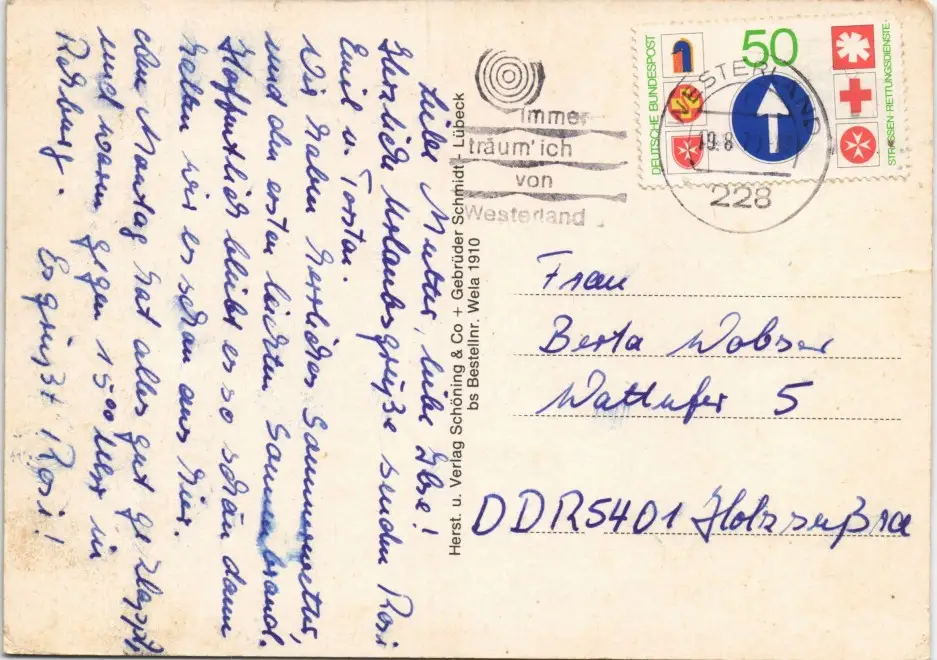 Liebe Mutter, liebe Ilse!
Herzliche Urlaubsgrüße senden Rosi
Emil u. Torsten.
Wir haben herrliches Sommerwetter,
und den ersten leichten Sonnenbrand.
Hoffentlich bleibt es so schön dann
halten wir es schon aus hier.
Am Montag hat alles gut geklappt
und waren gegen 15 00 Uhr in
Es grüßt Rosi!
Herst. u. Verlag Schöning & Co + Gebrüder Schmidt - Lübeck
bs Bestellnr. Wela 1910
immer
träum' ich
von
Westerland
DEUTSCHE BUNDESPOST
50
STRASSEN-RETTUNGSDIENSTE
WESTERLAND
228
Frau
Berta Wobser
Wattufer 5
DDR 5401 Holzsußra